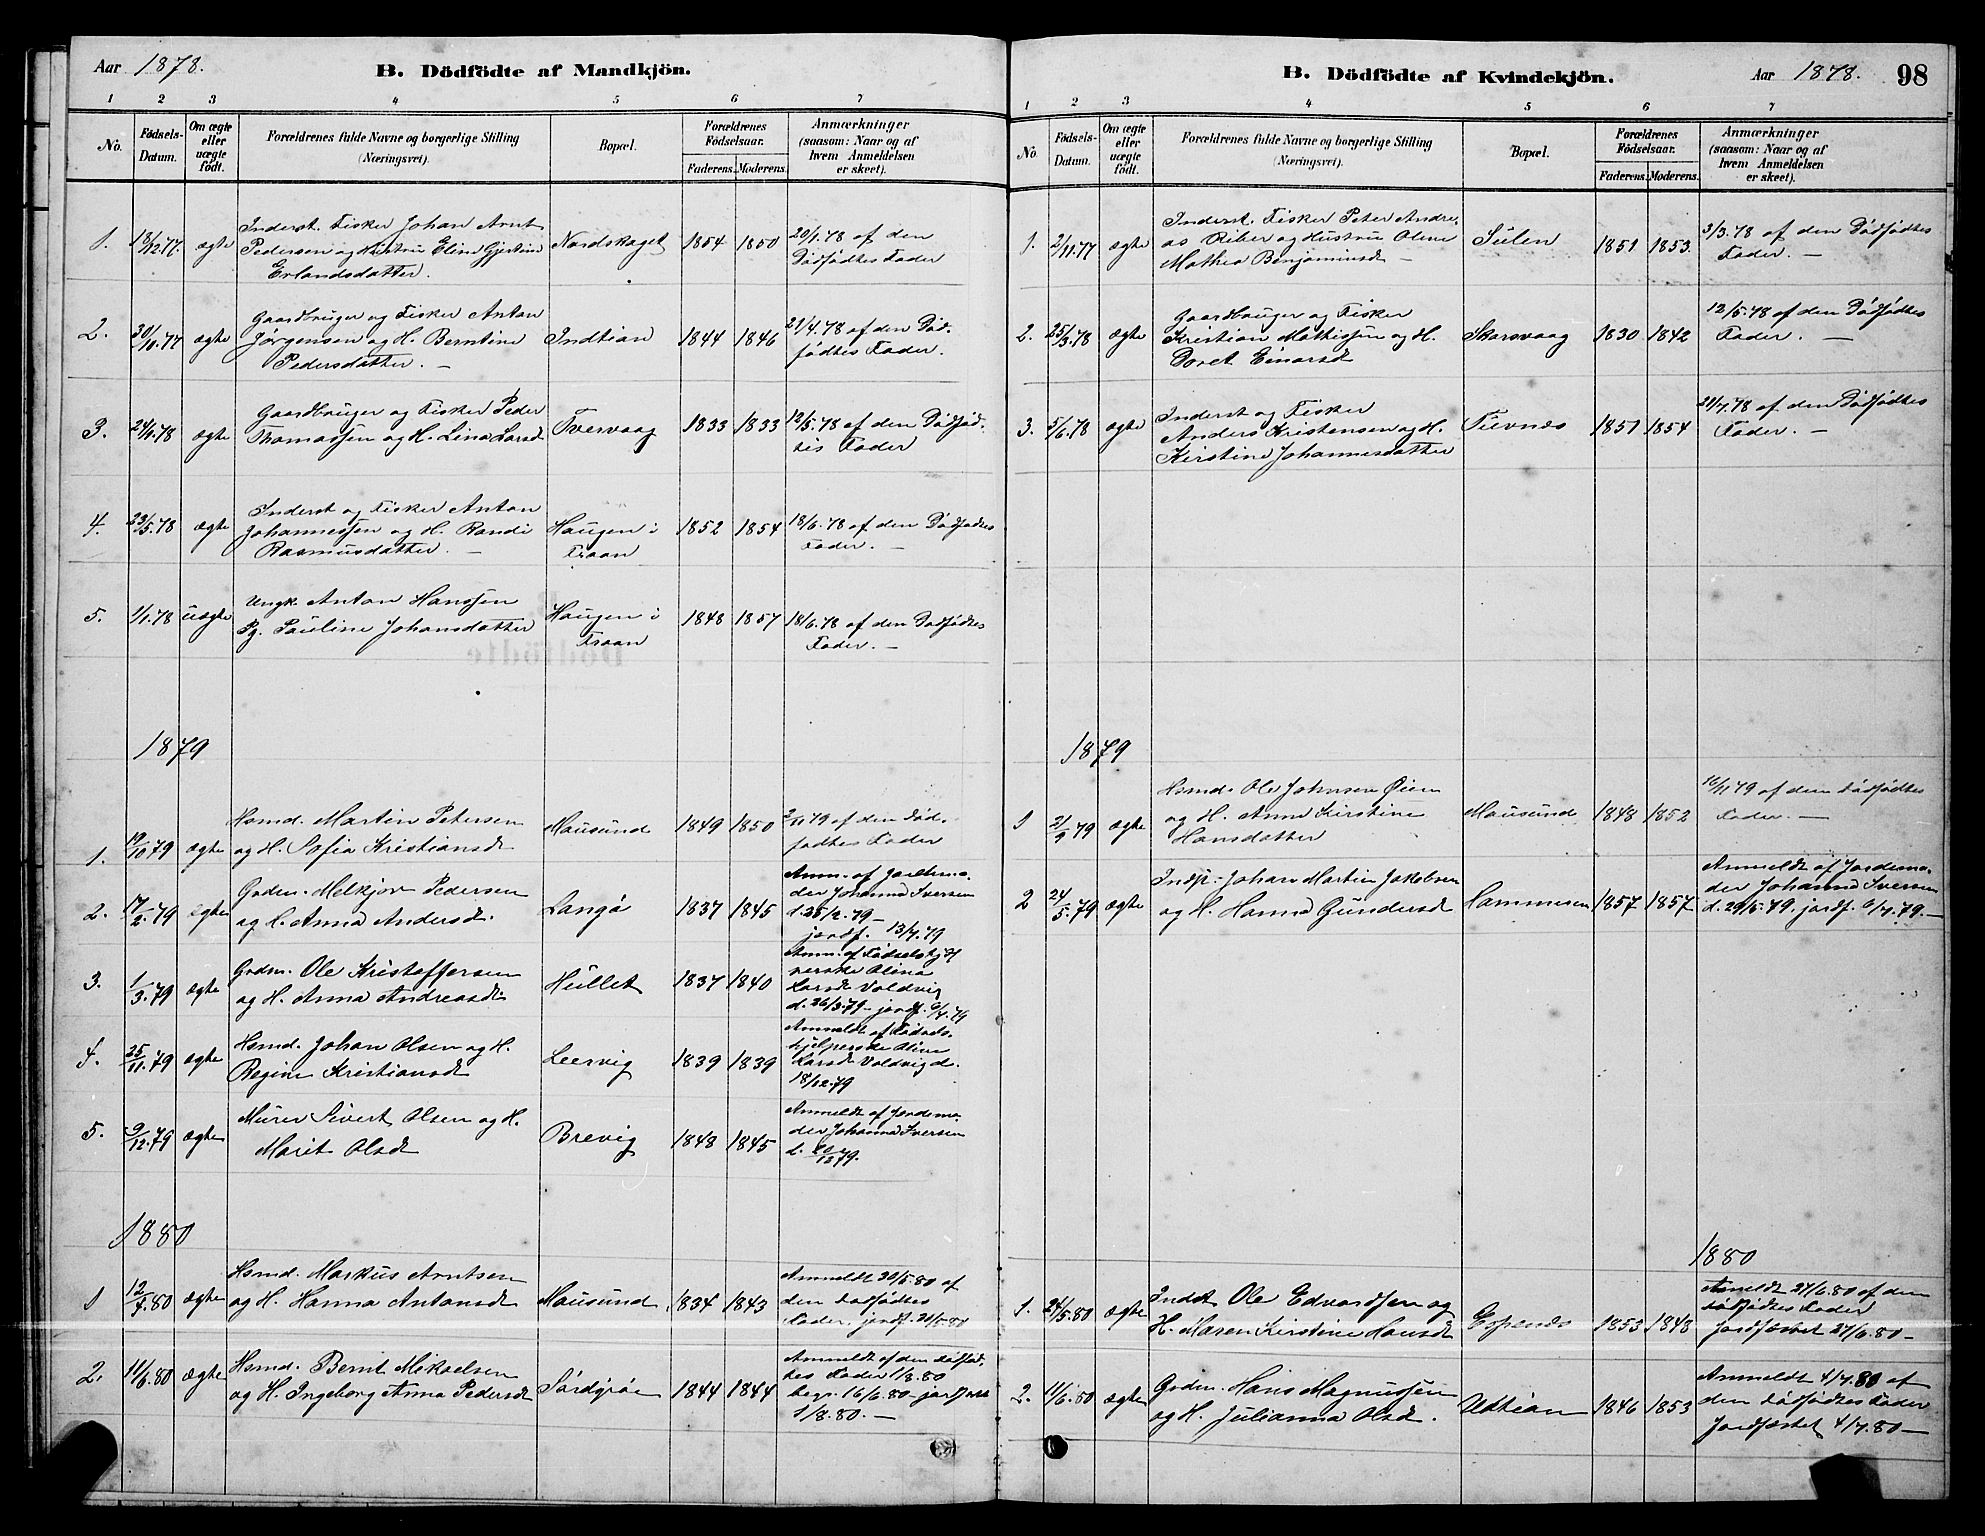 Aar 1878.
B. Dödfödte af Mandkjön.
1 2 3 4 5 6 7
No.
Födsels-
Datum.
Om ægte
eller
uægte
födt.
Forældrenes fulde Navne og borgerlige Stilling
(Næringsvei).
Bopæl.
Forældrenes
Födselsaar.
Faderens. Moderens.
Anmærkninger
(saasom: Naar og af
hvem Anmeldelsen
er skeet).
1. 13/12.77. ægte
Inderst. Fisker Johan Arnt
Pedersen og Hustru Eline Gjertine
Erlandsdatter.
Nordskaget 1854 1850
20/1.78 af den
Dödfödtes Fader
2. 30/10.77 ægte
Gaardbruger og Fisker Anton
Jørgensen og H. Berntine
Pedersdatter. —
Indtian 1844 1846
21/4.78 af den Död-
födtes Fader.
3. ægte
Gaardbruger og Fisker Peder
Thomassen og H. Lina Larsd.
Tvervaag 1833 1833
12/5.78 af den Dödföd-
tes Fader
4. 23/5.78 ægte
Inderst og Fisker Anton
Johannessen og H. Randi
Rasmusdatter. —
Haugen i
Fraan
1852 1854
18/6.78 af den Dödfödtes
Fader. —
5. 1/1.78 uægte
Ungk. Anton Hanssen
Pg. Pauline Johansdatter
Haugen i
Fraan
1848 1857
18/6.78 af den Dödfödtes
Fader. —
1879
1. 19/10 79 ægte
Hsmd. Martin Petersen
og H. Sofia Kristiansd.
Mausund 1849 1850
2/11 79 af den Död-
födtes Fader
2. 17/2.79 ægte
Grdm. Melkjor Pedersen
og H. Anna Andersd.
Langö 1837 1845
Anm. af Jordemo-
der Johanna Iversen
d. 25/2.79 —
jordf. 13/7.79
3. 1/3.79 ægte
Grdm. Ole Kristoffersen
og H. Anna Andreasd.
Hullet 1837 1840
Anm. af Fødselshj
perske Olina
Larsd. Valdvig
d. 26/3.79 — jordf. 6/4.79
4. 25/11.79 ægte
Hsmd. Johan Olsen og H.
Regine Kristiansd.
Leervig 1839 1839
Anmeldt af Fødsels-
hjelperske Oline
Larsd. Valdvig d.
18/12.79
5. 9/12.79 ægte
Murer Sivert Olsen og H.
Marit Olsd.
Brevig 1848 1845
Anmeldt af Jordemo-
der Johanna Iversen
d. 20/12 79.
1880
1 12/4.80 ægte
Hsmd. Markus Arntsen
og H. Hanna Antonsd.
Mausund 1834 1843
Anmeldt 30/5.80 af
den dødfødtes
Fader. jordf.
2. 11/6.80 ægte
Hsmd. Bernt Mikaelsen
og H. Ingeborg Anna Pedersd.
1844 1844
Anmeldt af den dødfød-
tes Fader 1/8.80
begr. 16/6.80 — jordfæstet
1/8.80. —
B. Dödfödte af Kvindekjön.
Aar 1878. 98
1 2 3 4 5 6 7
No.
Födsels-
Datum.
Om ægte
eller
uægte
födt.
Forældrenes fulde Navne og borgerlige Stilling
(Næringsvei).
Bopæl.
Forældrenes
Födselsaar.
Faderens. Moderens.
Anmærkninger
(saasom: Naar og af
hvem Anmeldelsen
er skeet).
1. 2/11.77 ægte
Inderst. Fisker Peter Andre-
as Riber og Hustru Oline
Mathea Benjaminsd. —
Sulen 1851 1853.
3/3.78 af den Dödfödtes
Fader. —
2. 25/3.78 ægte
Gaardbruger og Fisker
Kristian Mathissen og H.
Doret Einarsd.
Skarsvaag 1830 1842
12/5.78 af den Dödfödtes
Fader. —
3. 5/6.78 ægte
Inderst og Fisker
Anders Kristensen og H.
Kirstine Johannesdatter
Tuvnæs 1851 1854
21/7.78 af den Dödfödtes
Fader. —
1879
1 21/9 79 ægte
Hsmd. Ole Johnsen Øien
og H. Anna Kirstine
Hansdatter
Mausund 1848 1852
16/11 79 af den dødfødtes
Fader. —
2 24/5.79 ægte
Indst. Johan Martin Jakobsen
og H. Hanna Gundersd.
Hammeren 1857 1857
Anmeldt af Jordemo-
der Johanna Iversen
d. 29/5.79. jordf. 6/7.79. —
1880
1. 24/5.80 ægte
Indst. Ole Edvardsen og
H. Maren Kirstine Hansd.
Espenæs 1853 1848
Anmeldt 27/6.80 af den
dødfødtes Fader
Jordfæstet 27/6.80 —
2. 11/6.80 ægte
Grdm. Hans Magnussen
og H. Julianna Olsd.
Udtian 1846 1853
Anmeldt 4/7.80 af
den dødfødtes Fader
Jordfæstet 4/7.80 —